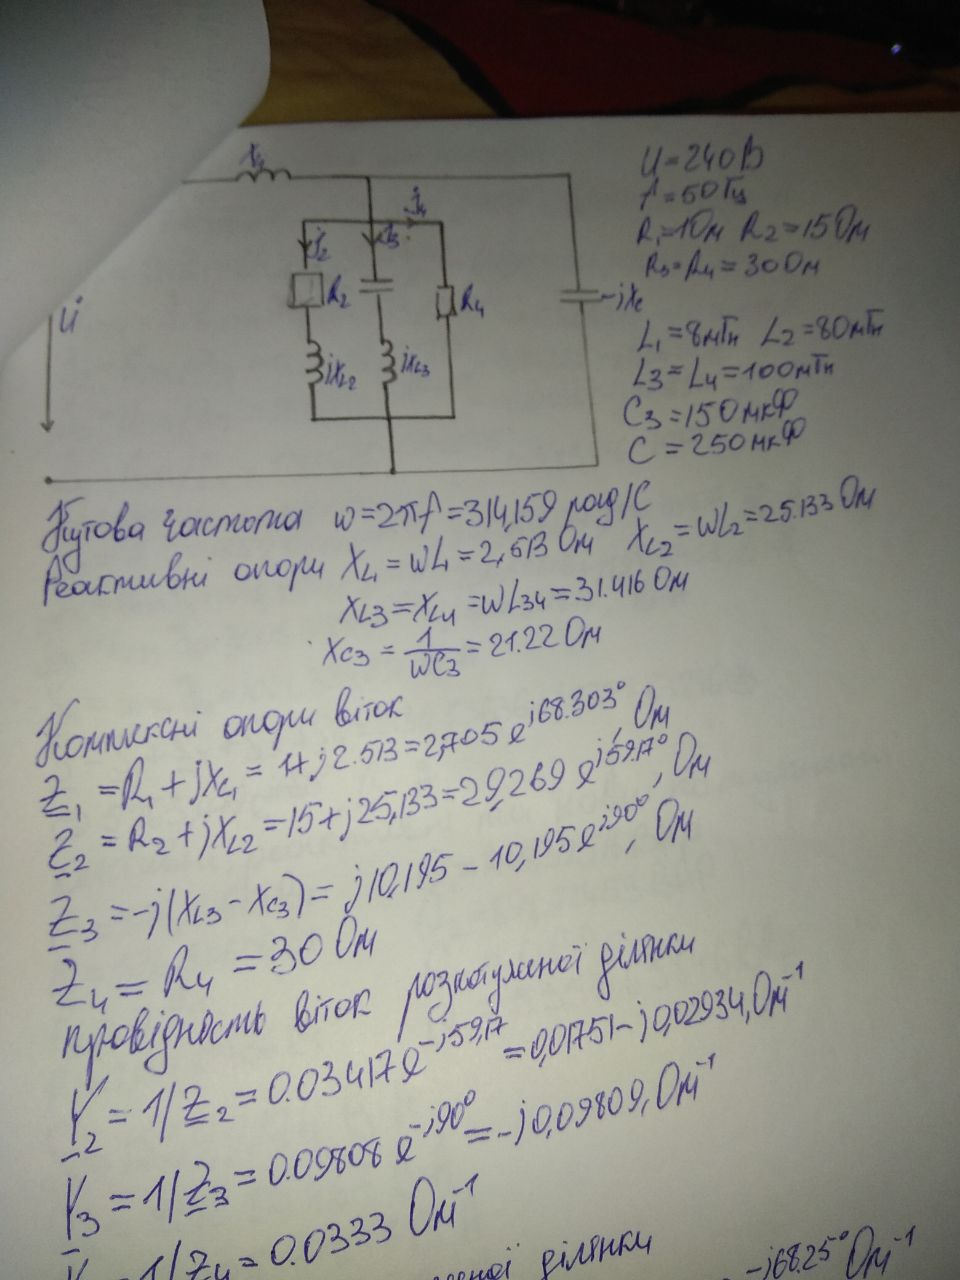 X₁
U = 240 В
f = 50 Гц
R₁ = 1 Ом R₂ = 15 Ом
R₃ = R₄ = 30 Ом
L₁ = 8 мГн L₂ = 80 мГн
L₃ = L₄ = 100 мГн
C₃ = 150 мкФ
C = 250 мкФ
I₄
I₂
I₃
R₂
R₄
-jXc
U
jXL2
jXL3
Кутова частота w = 2πf = 314,159 рад/С
Реактивні опори XL₁ = WL₁ = 2,513 Ом XL₂ = WL₂ = 25.133 Ом
XL3 = XL4 = WL34 = 31.416 Ом
Xc3 = 1/WC3 = 21.22 Ом
Комплексні опори віток
Z₁ = R₁ + jXL₁ = 1 + j2.513 = 2,705 e^j68.303°, Ом
Z₂ = R₂ + jXL2 = 15 + j25,133 = 29,269 e^j59.17°, Ом
Z₃ = -j(XL3 - Xc3) = j10,195 - 10,195 e^j90°, Ом
Z₄ = R₄ = 30 Ом
провідність віток розгалуженої ділянки
Y₂ = 1/Z₂ = 0.03417 e^-j59,17 = 0,01751 - j0,02934, Ом⁻¹
Y₃ = 1/Z₃ = 0.09808 e^-j90° = -j0,09809, Ом⁻¹
1/Z₄ = 0.0333 Ом⁻¹
ділянки
-j68.25° Ом⁻¹